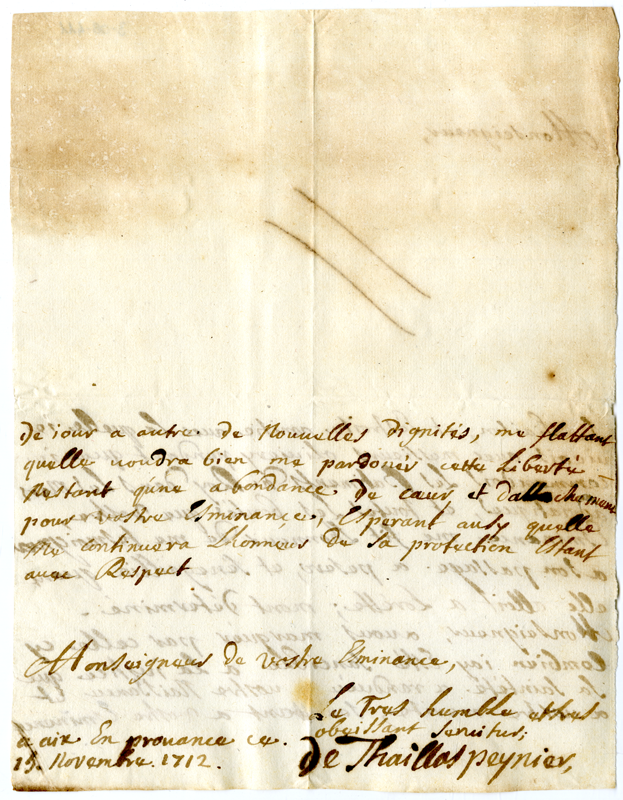 De iour a autre De Nouvelles dignités, me flattant
quelle voudra bien me pardonér cette Liberté
N'estant qune abondance De cœur et Dattachement
pour vostre Esminançe, Esperant ausy quelle
me continuera Lhonneur de sa protection Estant
avec Respect
Monseigneur de vostre Esminance,
Le Tres humble et tres
obeissant serviteur,
a aix En provance ce
15. Novembre 1712.
De Thaillas peynier,